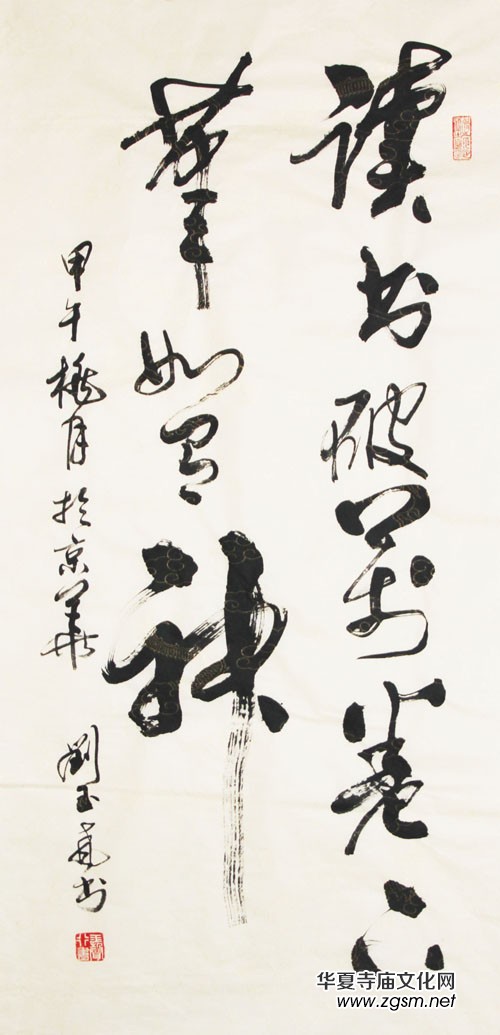 读书破万卷下
笔如有神
甲午桃月於京华
刘玉书
华夏寺庙文化网
www.zgsm.net